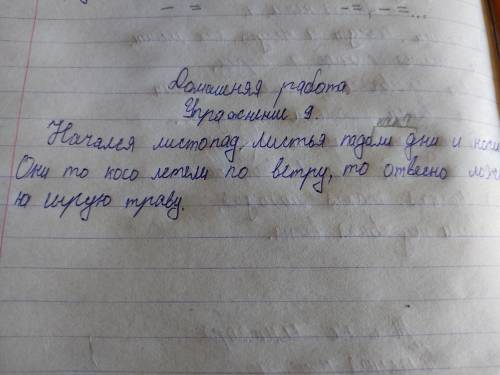 - =   - =, - = ...
Домашняя работа
Упражнение 9.
Начался листопад. Листья падали дни и
Они то косо летели по ветру, то отвесно
сырую траву.